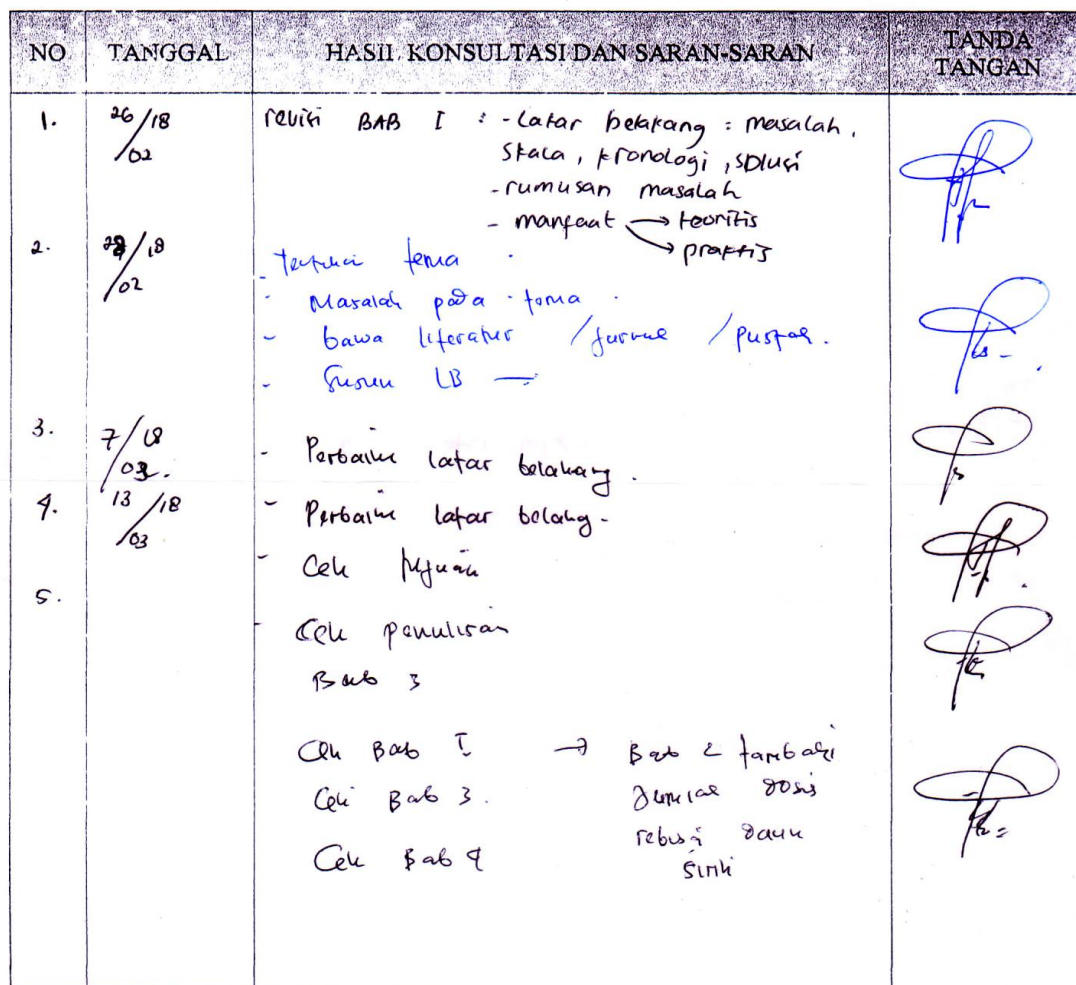 NO TANGGAL HASIL KONSULTASI DAN SARAN-SARAN TANDA TANGAN
1. 26/18/02 revisi BAB I : - Latar belakang : masalah,
skala, kronologi, solusi
- rumusan masalah
- manfaat → teoritis
→ praktis
2. 28/18/02 - tema
- Masalah pada tema
- bawa literatur / jurnal / pustak.
- Susun LB —
3. 7/18/03 - Perbaiki latar belakang.
4. 13/18/03 - Perbaiki latar belakg-
- Cek
5. - Cek penulisan
Bab 3
Cek Bab I → Bab 2 tambahi
Cek Bab 3. Jumlah dosis
rebusan daun
Cek Bab 4 sirih